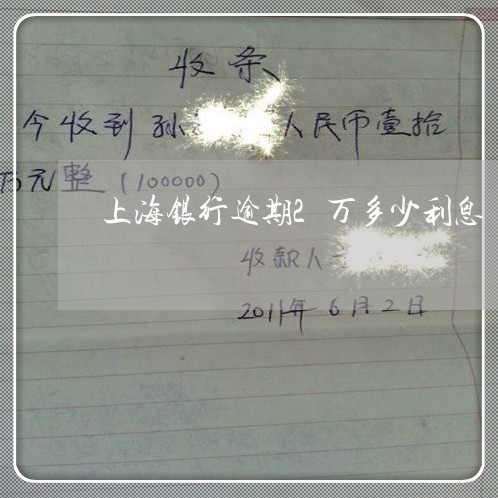 收条
今收到孙 人民币壹拾
万元整（100000）
上海银行逾期2万多少利息
收款人
2011年6月2日